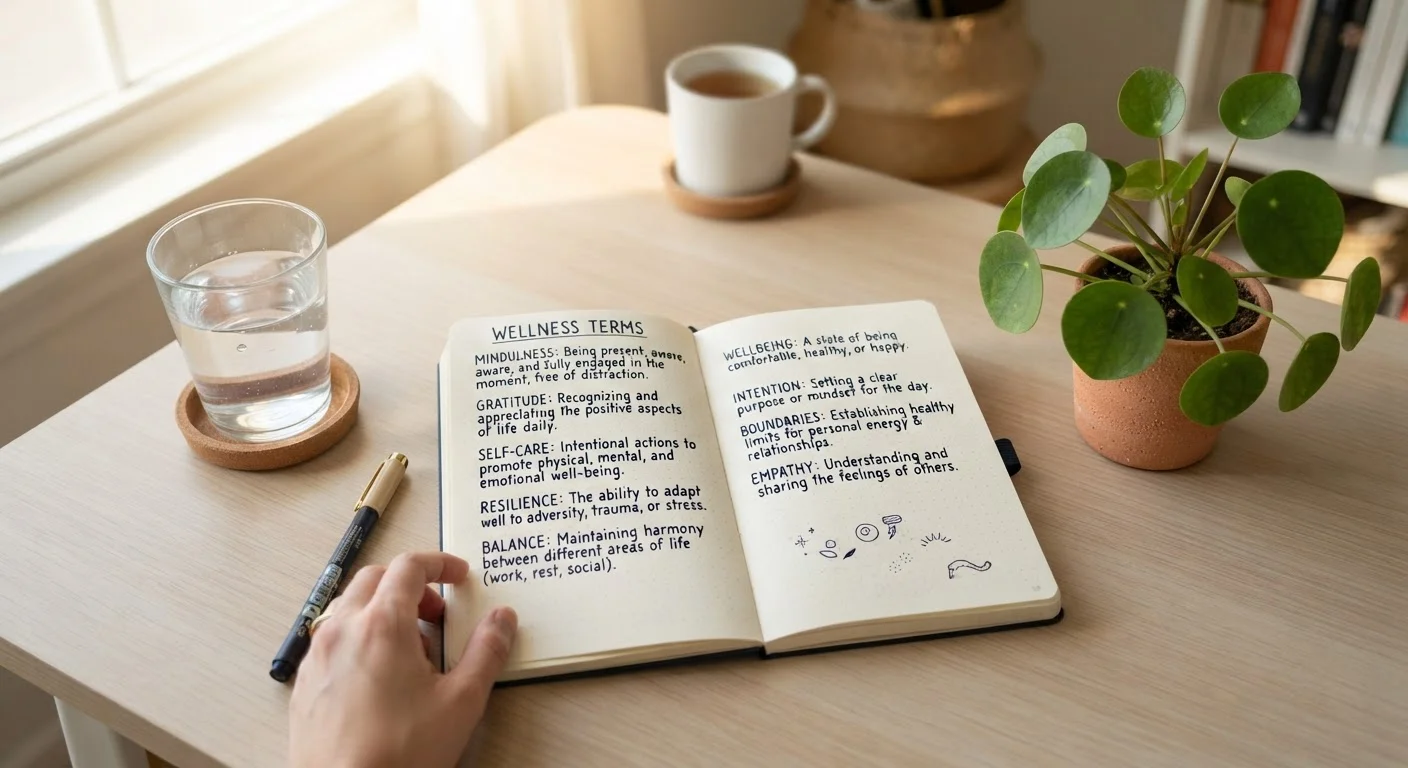 WELLNESS TERMS
MINDULNESS: Being present, aware,
aware, and fully engaged in the
moment, free of distraction.
GRATITUDE: Recognizing and
appreciating the positive aspects
of life daily.
SELF-CARE: Intentional actions to
promote physical, mental, and
emotional well-being.
RESILIENCE: The ability to adapt
well to adversity, trauma, or stress.
BALANCE: Maintaining harmony
between different areas of life
(work, rest, social).
WELLBEING: A state of being
comfortable, healthy, or happy.
INTENTION: Setting a clear
purpose or mindset for the day.
BOUNDARIES: Establishing healthy
limits for personal energy &
relationships.
EMPATHY: Understanding and
sharing the feelings of others.